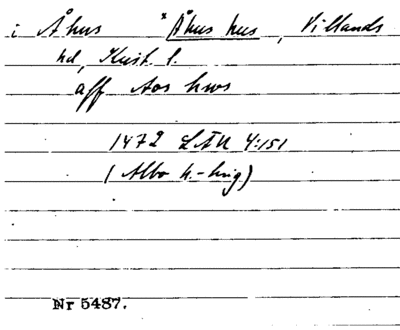 i Åhus × Åhus hus, Villands
hd, Krist. l.
aff Aos hws
1472 LÄU 4:151
(Albo h.-ting)
Nr 5487.